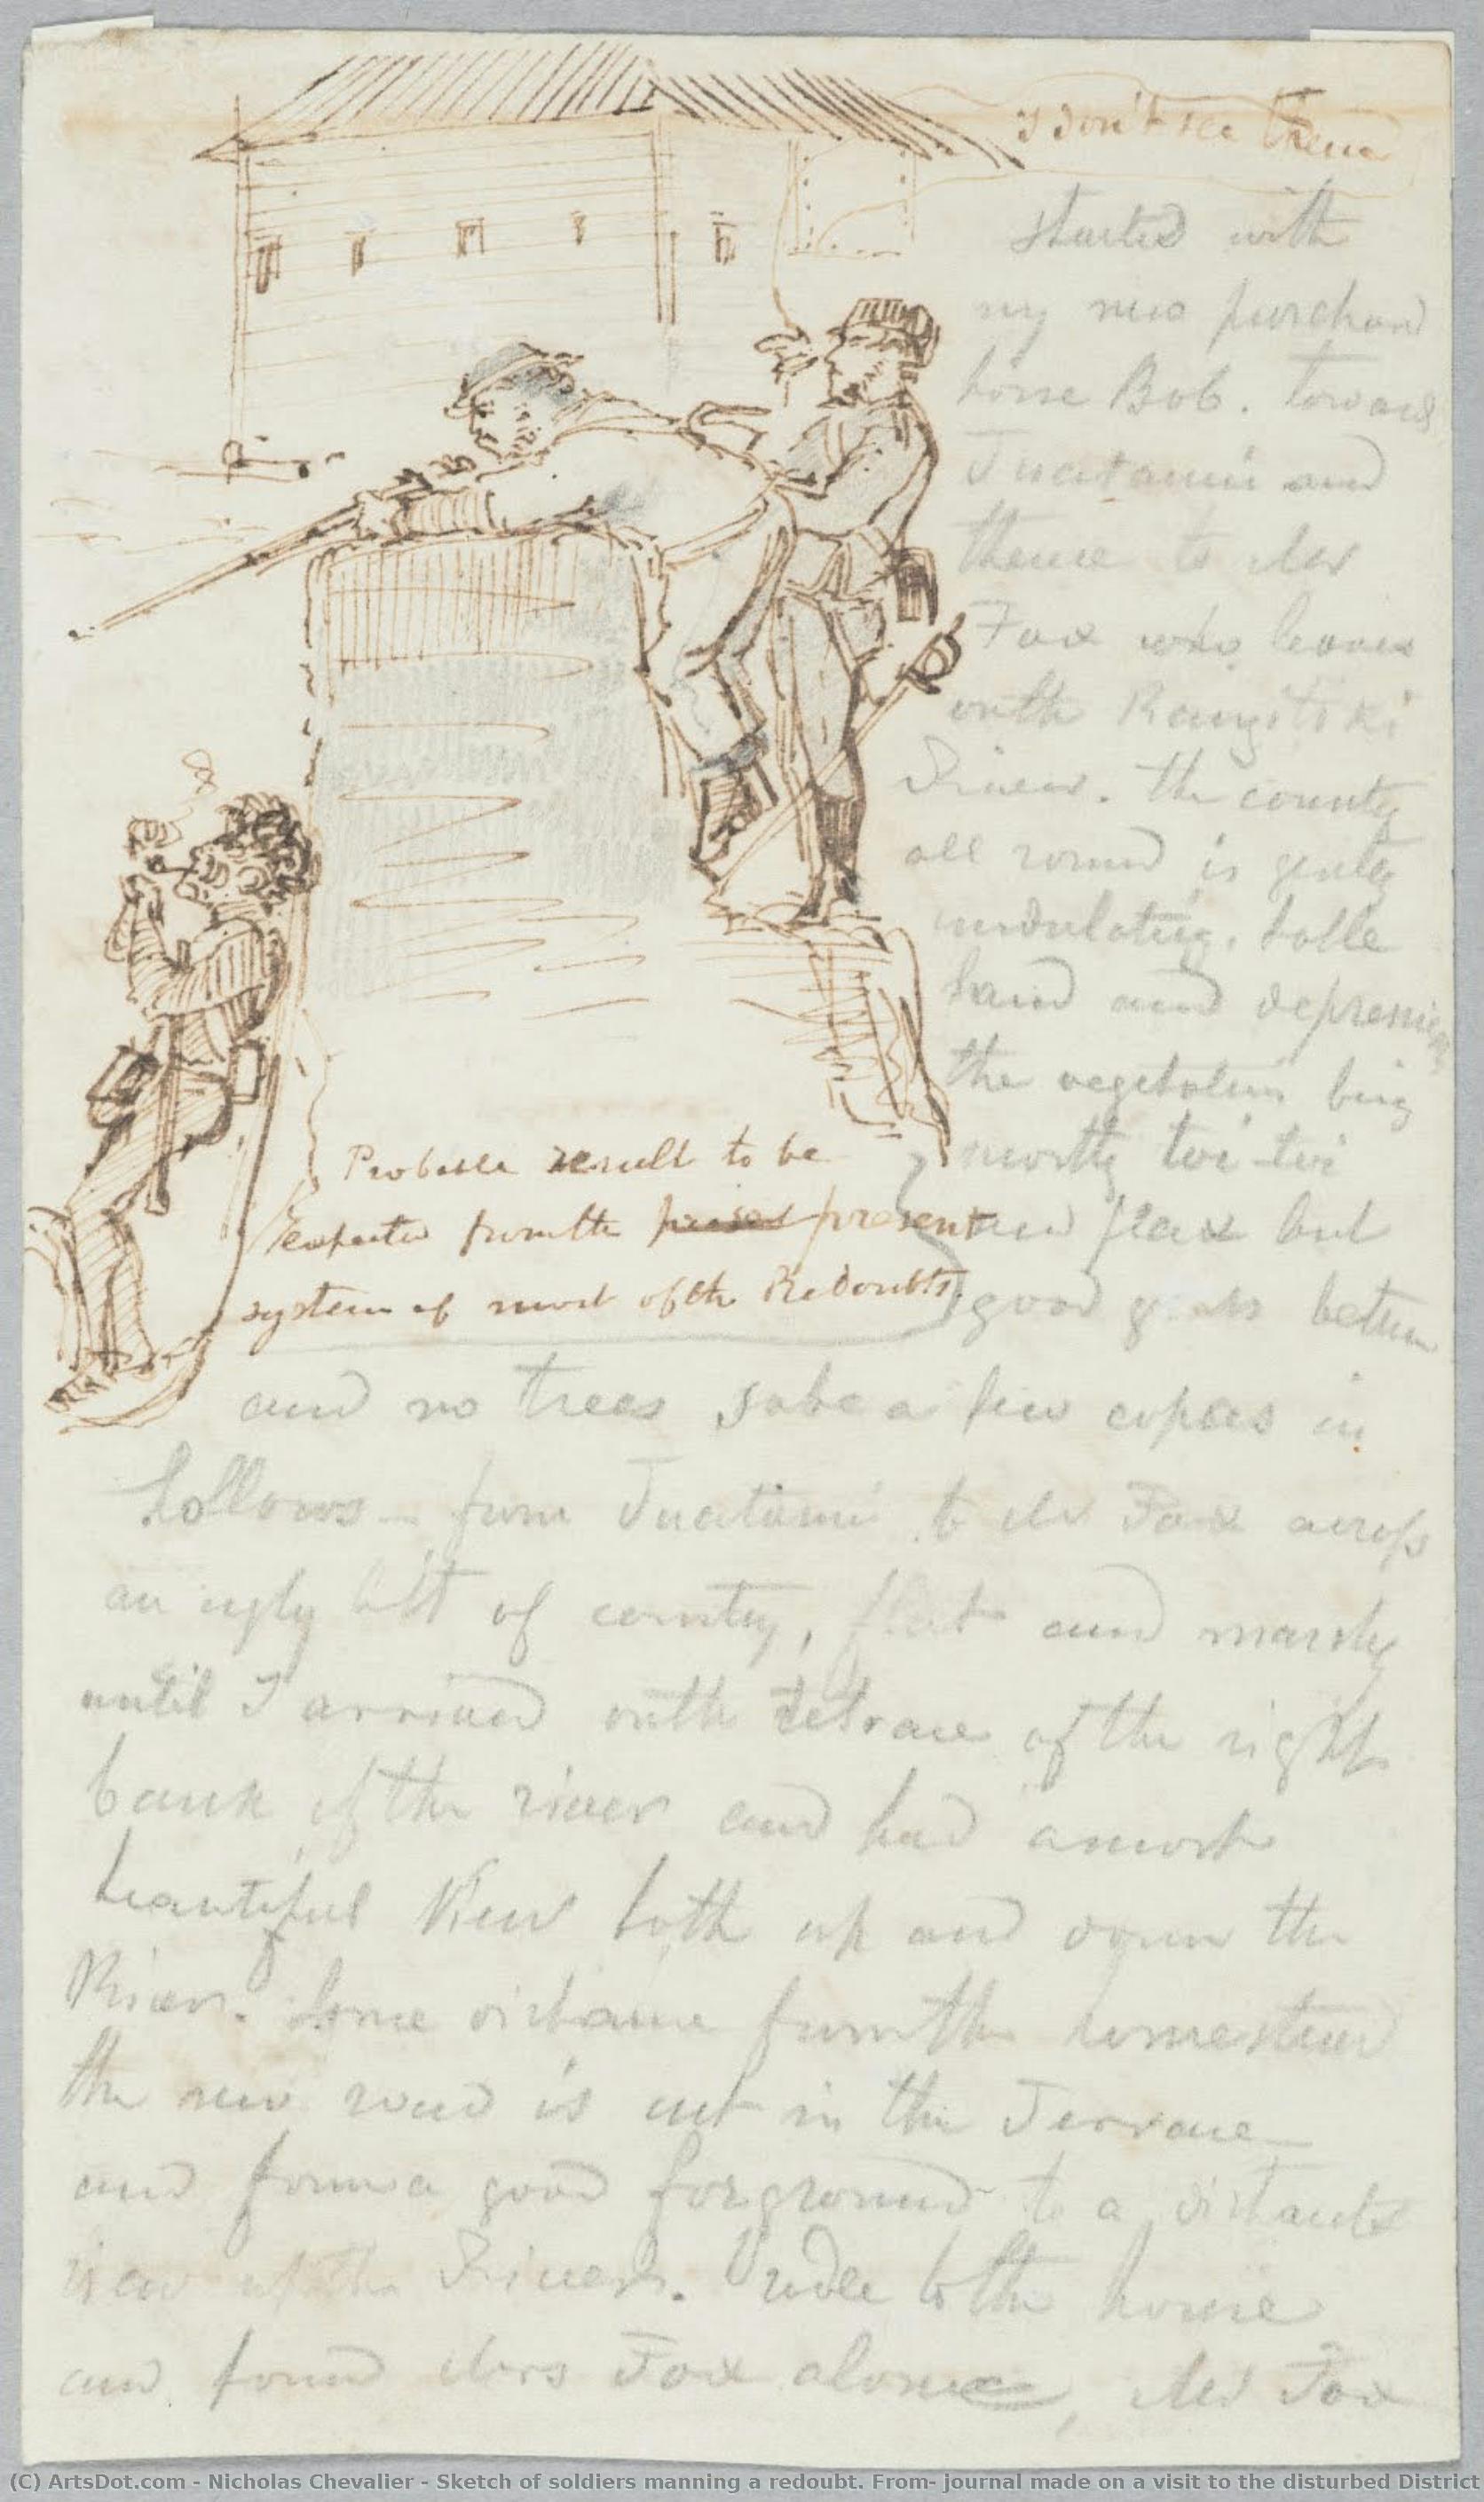 I don't see them
Started with
my new purchased
horse Bob. toward
Tuatamui and
thence to Mr
Fox who leaves
onth Rangitiki
River. the county
all round is gently
undulating. table
land and depression
the vegetation being
mostly toi-toi
and flax but
good grass between
Probable result to be
expected fromthe present present
system of most ofth Redoubts.
and no trees sabe a few copses in
hollows – from Tuatamui to Mr Fox across
an ugly bit of county, flat and marshy
until I arrived onth tetrace of the right
bank of the river and had a most
beautiful View both up and down the
River. Some distance fromth homestead
the new road is cut in the Terrace
and form a good forground to a distant
view of the River. rode to the house
and found Mrs Fox alone, Mr Fox
(C) ArtsDot.com - Nicholas Chevalier - Sketch of soldiers manning a redoubt. From- journal made on a visit to the disturbed District